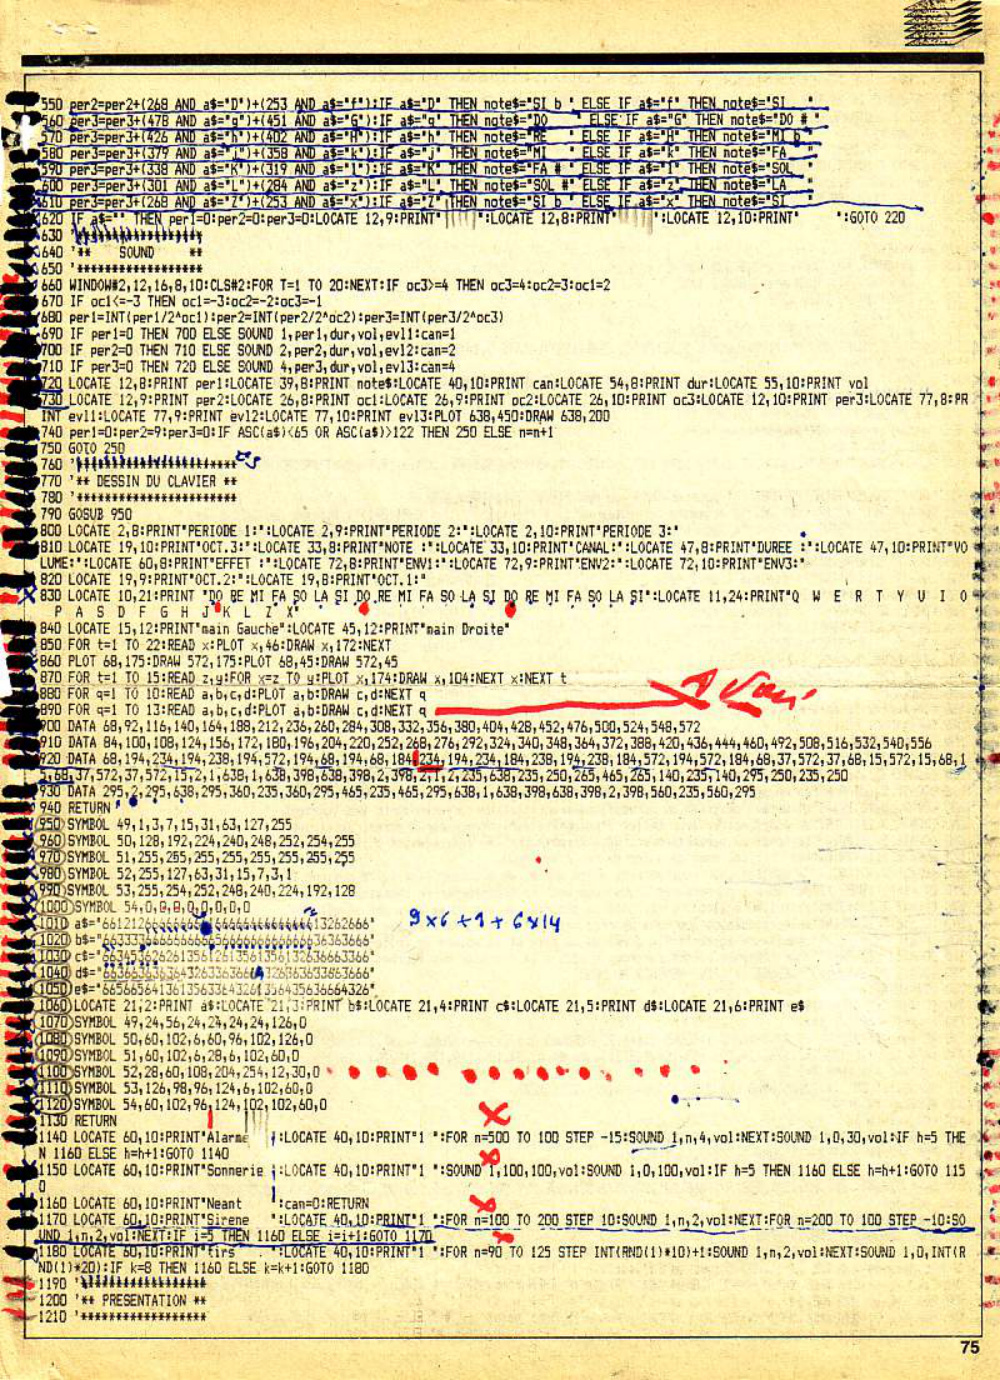 550 per2=per2+(268 AND a$="D")+(253 AND a$="f"):IF a$="D" THEN note$="SI b " ELSE IF a$="f" THEN note$="SI   "
560 per3=per3+(478 AND a$="g")+(451 AND a$="G"):IF a$="g" THEN note$="DO   " ELSE IF a$="G" THEN note$="DO # "
570 per3=per3+(426 AND a$="h")+(402 AND a$="H"):IF a$="h" THEN note$="RE   " ELSE IF a$="H" THEN note$="MI b "
580 per3=per3+(379 AND a$="j")+(358 AND a$="k"):IF a$="j" THEN note$="MI   " ELSE IF a$="k" THEN note$="FA   "
590 per3=per3+(338 AND a$="K")+(319 AND a$="l"):IF a$="K" THEN note$="FA # " ELSE IF a$="l" THEN note$="SOL  "
600 per3=per3+(301 AND a$="L")+(284 AND a$="z"):IF a$="L" THEN note$="SOL #" ELSE IF a$="z" THEN note$="LA   "
610 per3=per3+(268 AND a$="Z")+(253 AND a$="x"):IF a$="Z" THEN note$="SI b " ELSE IF a$="x" THEN note$="SI   "
620 IF a$="" THEN per1=0:per2=0:per3=0:LOCATE 12,9:PRINT"     ":LOCATE 12,8:PRINT"     ":LOCATE 12,10:PRINT"     ":GOTO 220
630 '******************
640 '**   SOUND     **
650 '******************
660 WINDOW#2,12,16,8,10:CLS#2:FOR T=1 TO 20:NEXT:IF oc3>=4 THEN oc3=4:oc2=3:oc1=2
670 IF oc1<=-3 THEN oc1=-3:oc2=-2:oc3=-1
680 per1=INT(per1/2^oc1):per2=INT(per2/2^oc2):per3=INT(per3/2^oc3)
690 IF per1=0 THEN 700 ELSE SOUND 1,per1,dur,vol,evl1:can=1
700 IF per2=0 THEN 710 ELSE SOUND 2,per2,dur,vol,evl2:can=2
710 IF per3=0 THEN 720 ELSE SOUND 4,per3,dur,vol,evl3:can=4
720 LOCATE 12,8:PRINT per1:LOCATE 39,8:PRINT note$:LOCATE 40,10:PRINT can:LOCATE 54,8:PRINT dur:LOCATE 55,10:PRINT vol
730 LOCATE 12,9:PRINT per2:LOCATE 26,8:PRINT oc1:LOCATE 26,9:PRINT oc2:LOCATE 26,10:PRINT oc3:LOCATE 12,10:PRINT per3:LOCATE 77,8:PR
INT evl1:LOCATE 77,9:PRINT evl2:LOCATE 77,10:PRINT evl3:PLOT 638,450:DRAW 638,200
740 per1=0:per2=9:per3=0:IF ASC(a$)<65 OR ASC(a$)>122 THEN 250 ELSE n=n+1
750 GOTO 250
760 '***********************
770 '** DESSIN DU CLAVIER **
780 '***********************
790 GOSUB 950
800 LOCATE 2,8:PRINT"PERIODE 1:":LOCATE 2,9:PRINT"PERIODE 2:":LOCATE 2,10:PRINT"PERIODE 3:"
810 LOCATE 19,10:PRINT"OCT.3:":LOCATE 33,8:PRINT"NOTE :":LOCATE 33,10:PRINT"CANAL:":LOCATE 47,8:PRINT"DUREE :":LOCATE 47,10:PRINT"VO
LUME:":LOCATE 60,8:PRINT"EFFET :":LOCATE 72,8:PRINT"ENV1:":LOCATE 72,9:PRINT"ENV2:":LOCATE 72,10:PRINT"ENV3:"
820 LOCATE 19,9:PRINT"OCT.2:":LOCATE 19,8:PRINT"OCT.1:"
830 LOCATE 10,21:PRINT "DO RE MI FA SO LA SI DO RE MI FA SO LA SI DO RE MI FA SO LA SI":LOCATE 11,24:PRINT"Q  W  E  R  T  Y  U  I  O
P  A  S  D  F  G  H  J  K  L  Z  X"
840 LOCATE 15,12:PRINT"main Gauche":LOCATE 45,12:PRINT"main Droite"
850 FOR t=1 TO 22:READ x:PLOT x,46:DRAW x,172:NEXT
860 PLOT 68,175:DRAW 572,175:PLOT 68,45:DRAW 572,45
870 FOR t=1 TO 15:READ z,y:FOR x=z TO y:PLOT x,174:DRAW x,104:NEXT x:NEXT t
880 FOR q=1 TO 10:READ a,b,c,d:PLOT a,b:DRAW c,d:NEXT q
890 FOR q=1 TO 13:READ a,b,c,d:PLOT a,b:DRAW c,d:NEXT q
900 DATA 68,92,116,140,164,188,212,236,260,284,308,332,356,380,404,428,452,476,500,524,548,572
910 DATA 84,100,108,124,156,172,180,196,204,220,252,268,276,292,324,340,348,364,372,388,420,436,444,460,492,508,516,532,540,556
920 DATA 68,194,234,194,238,194,572,194,68,194,68,184,234,194,234,184,238,194,238,184,572,194,572,184,68,37,572,37,68,15,572,15,68,1
5,68,37,572,37,572,15,2,1,638,1,638,398,638,398,2,398,2,1,2,235,638,235,250,265,465,265,140,235,140,295,250,235,250
930 DATA 295,2,295,638,295,360,235,360,295,465,235,465,295,638,1,638,398,638,398,2,398,560,235,560,295
940 RETURN
950 SYMBOL 49,1,3,7,15,31,63,127,255
960 SYMBOL 50,128,192,224,240,248,252,254,255
970 SYMBOL 51,255,255,255,255,255,255,255,255
980 SYMBOL 52,255,127,63,31,15,7,3,1
990 SYMBOL 53,255,254,252,248,240,224,192,128
1000 SYMBOL 54,0,0,0,0,0,0,0,0
9x6+1+6x14
1060 LOCATE 21,2:PRINT a$:LOCATE 21,3:PRINT b$:LOCATE 21,4:PRINT c$:LOCATE 21,5:PRINT d$:LOCATE 21,6:PRINT e$
1070 SYMBOL 49,24,56,24,24,24,24,126,0
1080 SYMBOL 50,60,102,6,60,96,102,126,0
1090 SYMBOL 51,60,102,6,28,6,102,60,0
1100 SYMBOL 52,28,60,108,204,254,12,30,0
1110 SYMBOL 53,126,98,96,124,6,102,60,0
1120 SYMBOL 54,60,102,96,124,102,102,60,0
1130 RETURN
1140 LOCATE 60,10:PRINT"Alarme   ":LOCATE 40,10:PRINT"1 ":FOR n=500 TO 100 STEP -15:SOUND 1,n,4,vol:NEXT:SOUND 1,0,30,vol:IF h=5 THE
N 1160 ELSE h=h+1:GOTO 1140
1150 LOCATE 60,10:PRINT"Sonnerie ":LOCATE 40,10:PRINT"1 ":SOUND 1,100,100,vol:SOUND 1,0,100,vol:IF h=5 THEN 1160 ELSE h=h+1:GOTO 115
0
1160 LOCATE 60,10:PRINT"Neant    ":can=0:RETURN
1170 LOCATE 60,10:PRINT"Sirene   ":LOCATE 40,10:PRINT"1 ":FOR n=100 TO 200 STEP 10:SOUND 1,n,2,vol:NEXT:FOR n=200 TO 100 STEP -10:SO
UND 1,n,2,vol:NEXT:IF i=5 THEN 1160 ELSE i=i+1:GOTO 1170
1180 LOCATE 60,10:PRINT"tirs     ":LOCATE 40,10:PRINT"1 ":FOR n=90 TO 125 STEP INT(RND(1)*10)+1:SOUND 1,n,2,vol:NEXT:SOUND 1,0,INT(R
ND(1)*20):IF k=8 THEN 1160 ELSE k=k+1:GOTO 1180
1190 '******************
1200 '** PRESENTATION **
1210 '******************
75